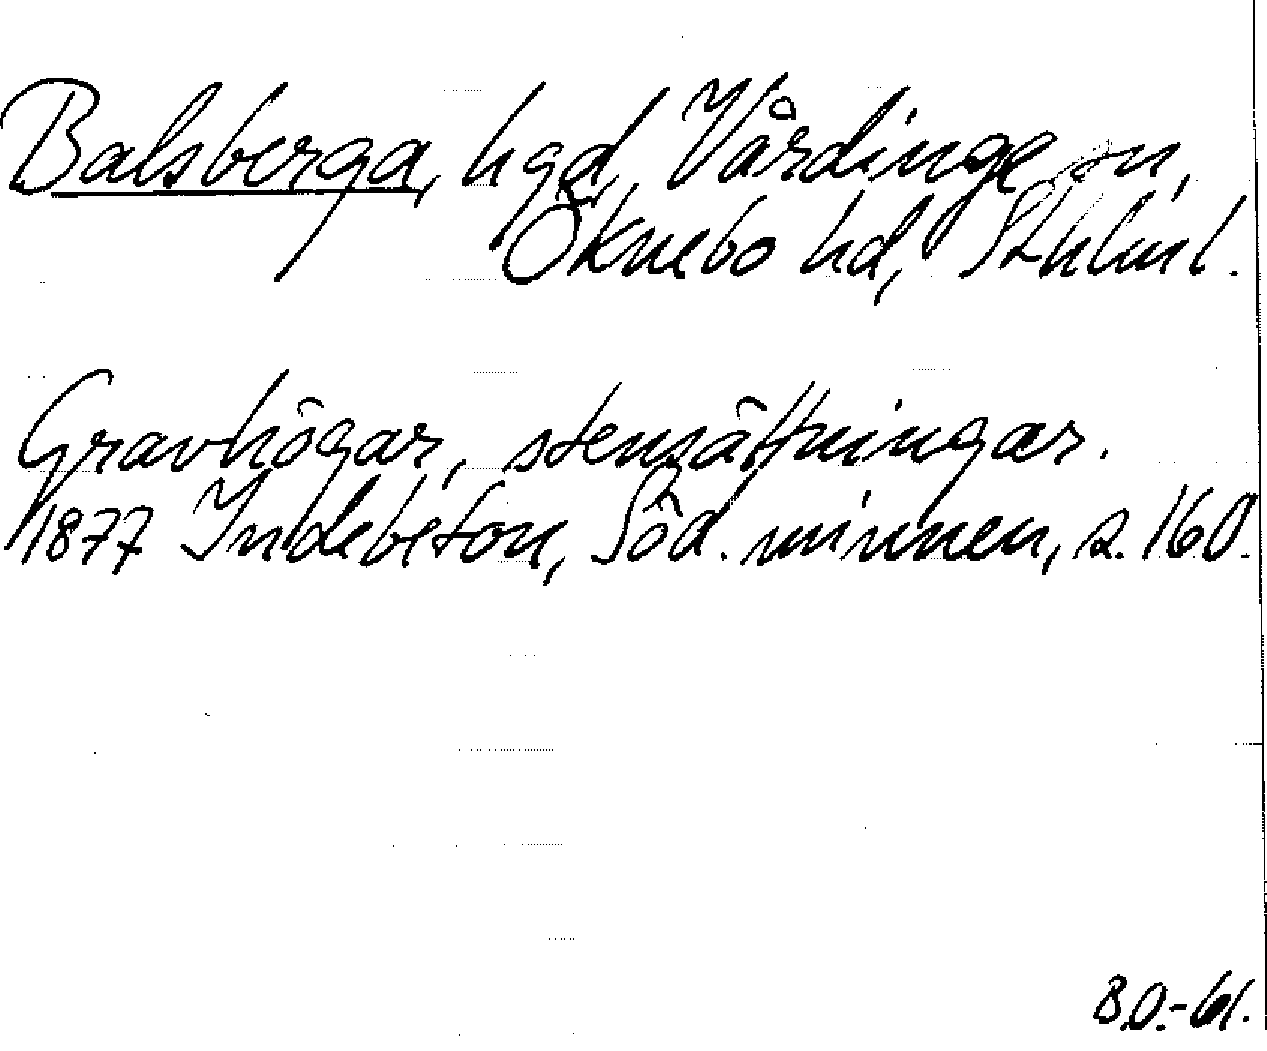 Balsberga, hgd, Vårdinge sn,
Öknebo hd, Sthlms l.
Gravhögar, stensättningar.
1877 Indebetou, Söd. minnen, s. 160.
B.O.-61.